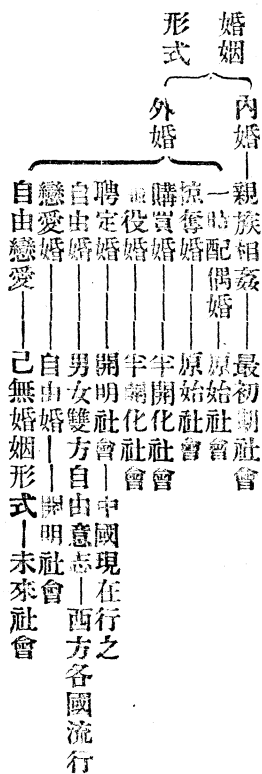 婚姻形式
內婚—親族相姦—最初期社會
外婚
一時配偶婚—原始社會
掠奪婚—原始社會
購買婚—半開化社會
役婚—半開化社會
聘定婚—開明社會—中國現在行之
自由婚—男女雙方自由意志—西方各國流行
戀愛婚—自由婚—開明社會
自由戀愛—己無婚姻形式—未來社會